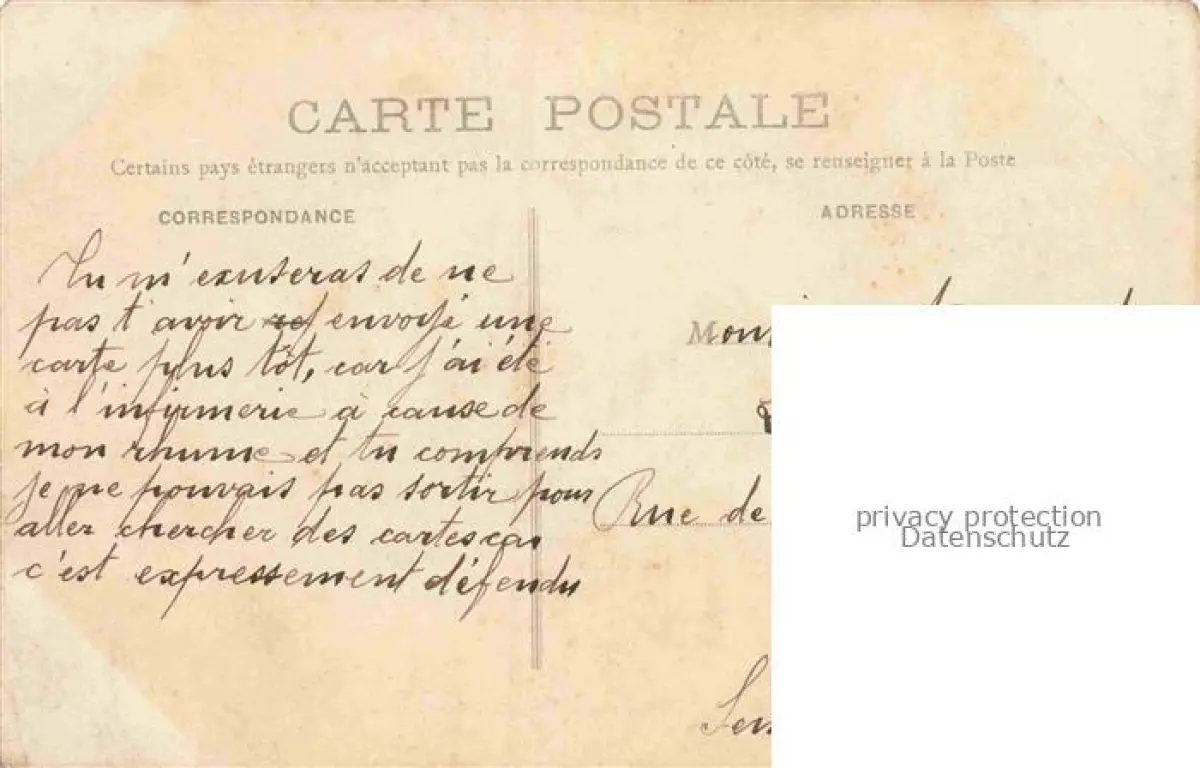 CARTE POSTALE
Certains pays étrangers n'acceptant pas la correspondance de ce côté, se renseigner à la Poste
CORRESPONDANCE
ADRESSE
Tu m'exuseras de ne
pas t'avoir envoyé une
carte plus tôt, car j'ai été
à l'infirmerie à cause de
mon rhume et tu comprends
je ne pouvais pas sortir pour
aller chercher des cartes car
c'est expressement défendu
Rue de
privacy protection
Datenschutz